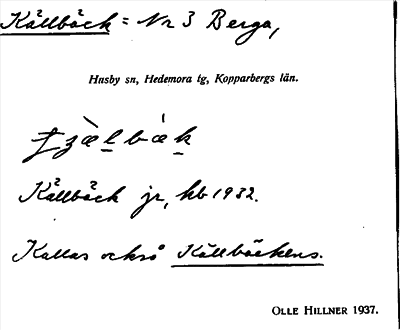 Källbäck = Nr 3 Berga,
Husby sn, Hedemora tg, Kopparbergs län.
Källbäck jr, kb 1932.
Kallas också Källbäckens.
OLLE HILLNER 1937.